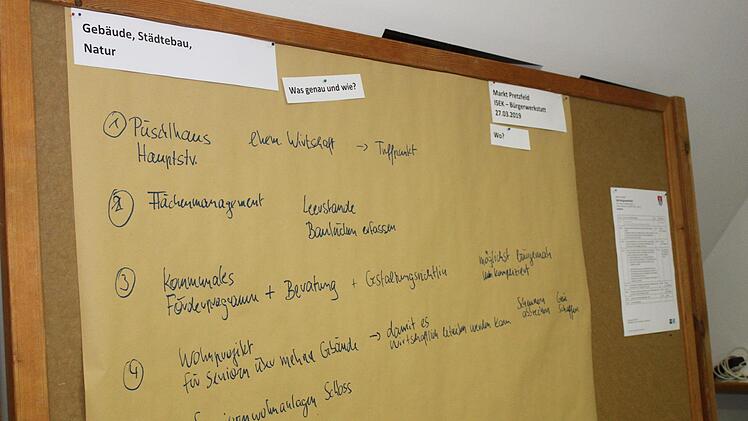 Gebäude, Städtebau,
Natur
Was genau und wie?
Markt Pretzfeld
ISEK – Bürgerwerkstatt
27.03.2019
Wo?
① Püschlhaus ehem Wirtschaft → Treffpunkt
Hauptstr.
② Flächenmanagement Leerstände
Baulücken erfassen
③ kommunales möglichst bürgernah
Förderprogramm + Beratung + Gestaltungsrichtlin unkompliziert
④ Wohnprojekt
für Senioren über mehrere Gebäude → damit es
wirtschaftlich betrieben werden kann
Seniorenwohnanlagen Schloss